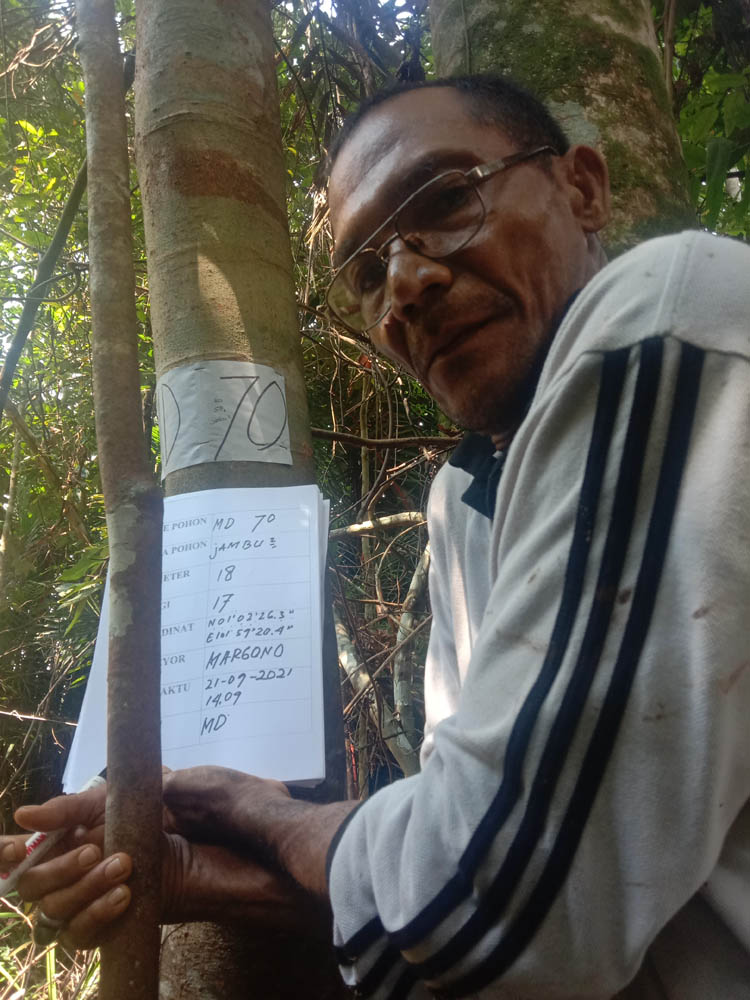 70
E POHON MD 70
A POHON jAMBU²
ETER 18
GI 17
DINAT N01°02'26.3"
E101°57'20.4"
YOR MARGONO
AKTU 21-09-2021
14.09
MD